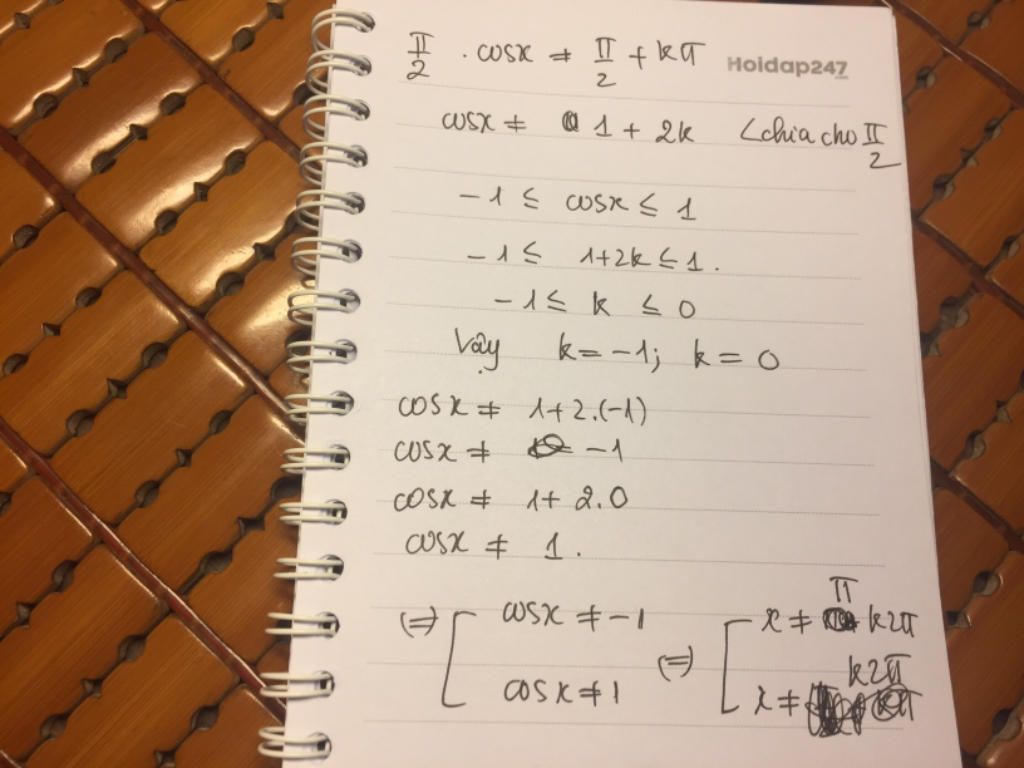 π/2 . cosx ≠ π/2 + kπ
Hoidap247
cosx ≠ 1 + 2k (chia cho π/2
-1 ≤ cosx ≤ 1
-1 ≤ 1+2k ≤ 1.
-1 ≤ k ≤ 0
Vậy k = -1; k = 0
cosx ≠ 1+2.(-1)
cosx ≠ -1
cosx ≠ 1+ 2.0
cosx ≠ 1.
(=) [ cosx ≠ -1 (=) [ x ≠ π + k2π
cosx ≠ 1 x ≠ k2π